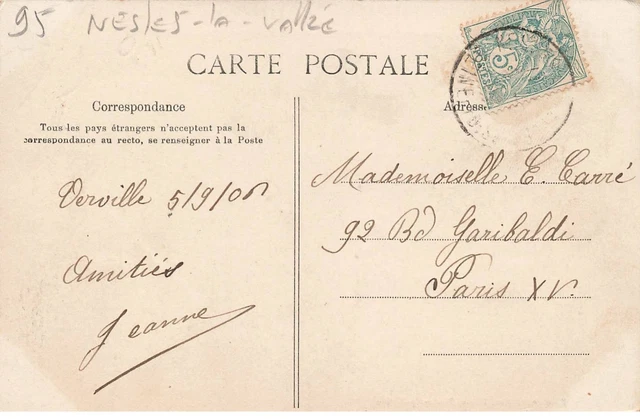 95 Nesles-la-Vallée
CARTE POSTALE
Correspondance
Tous les pays étrangers n'acceptent pas la
correspondance au recto, se renseigner à la Poste
Adresse
5
Derville 5/9/06
Amitiés
Jeanne
Mademoiselle E. Carré
92 Bd Garibaldi
Paris XV.